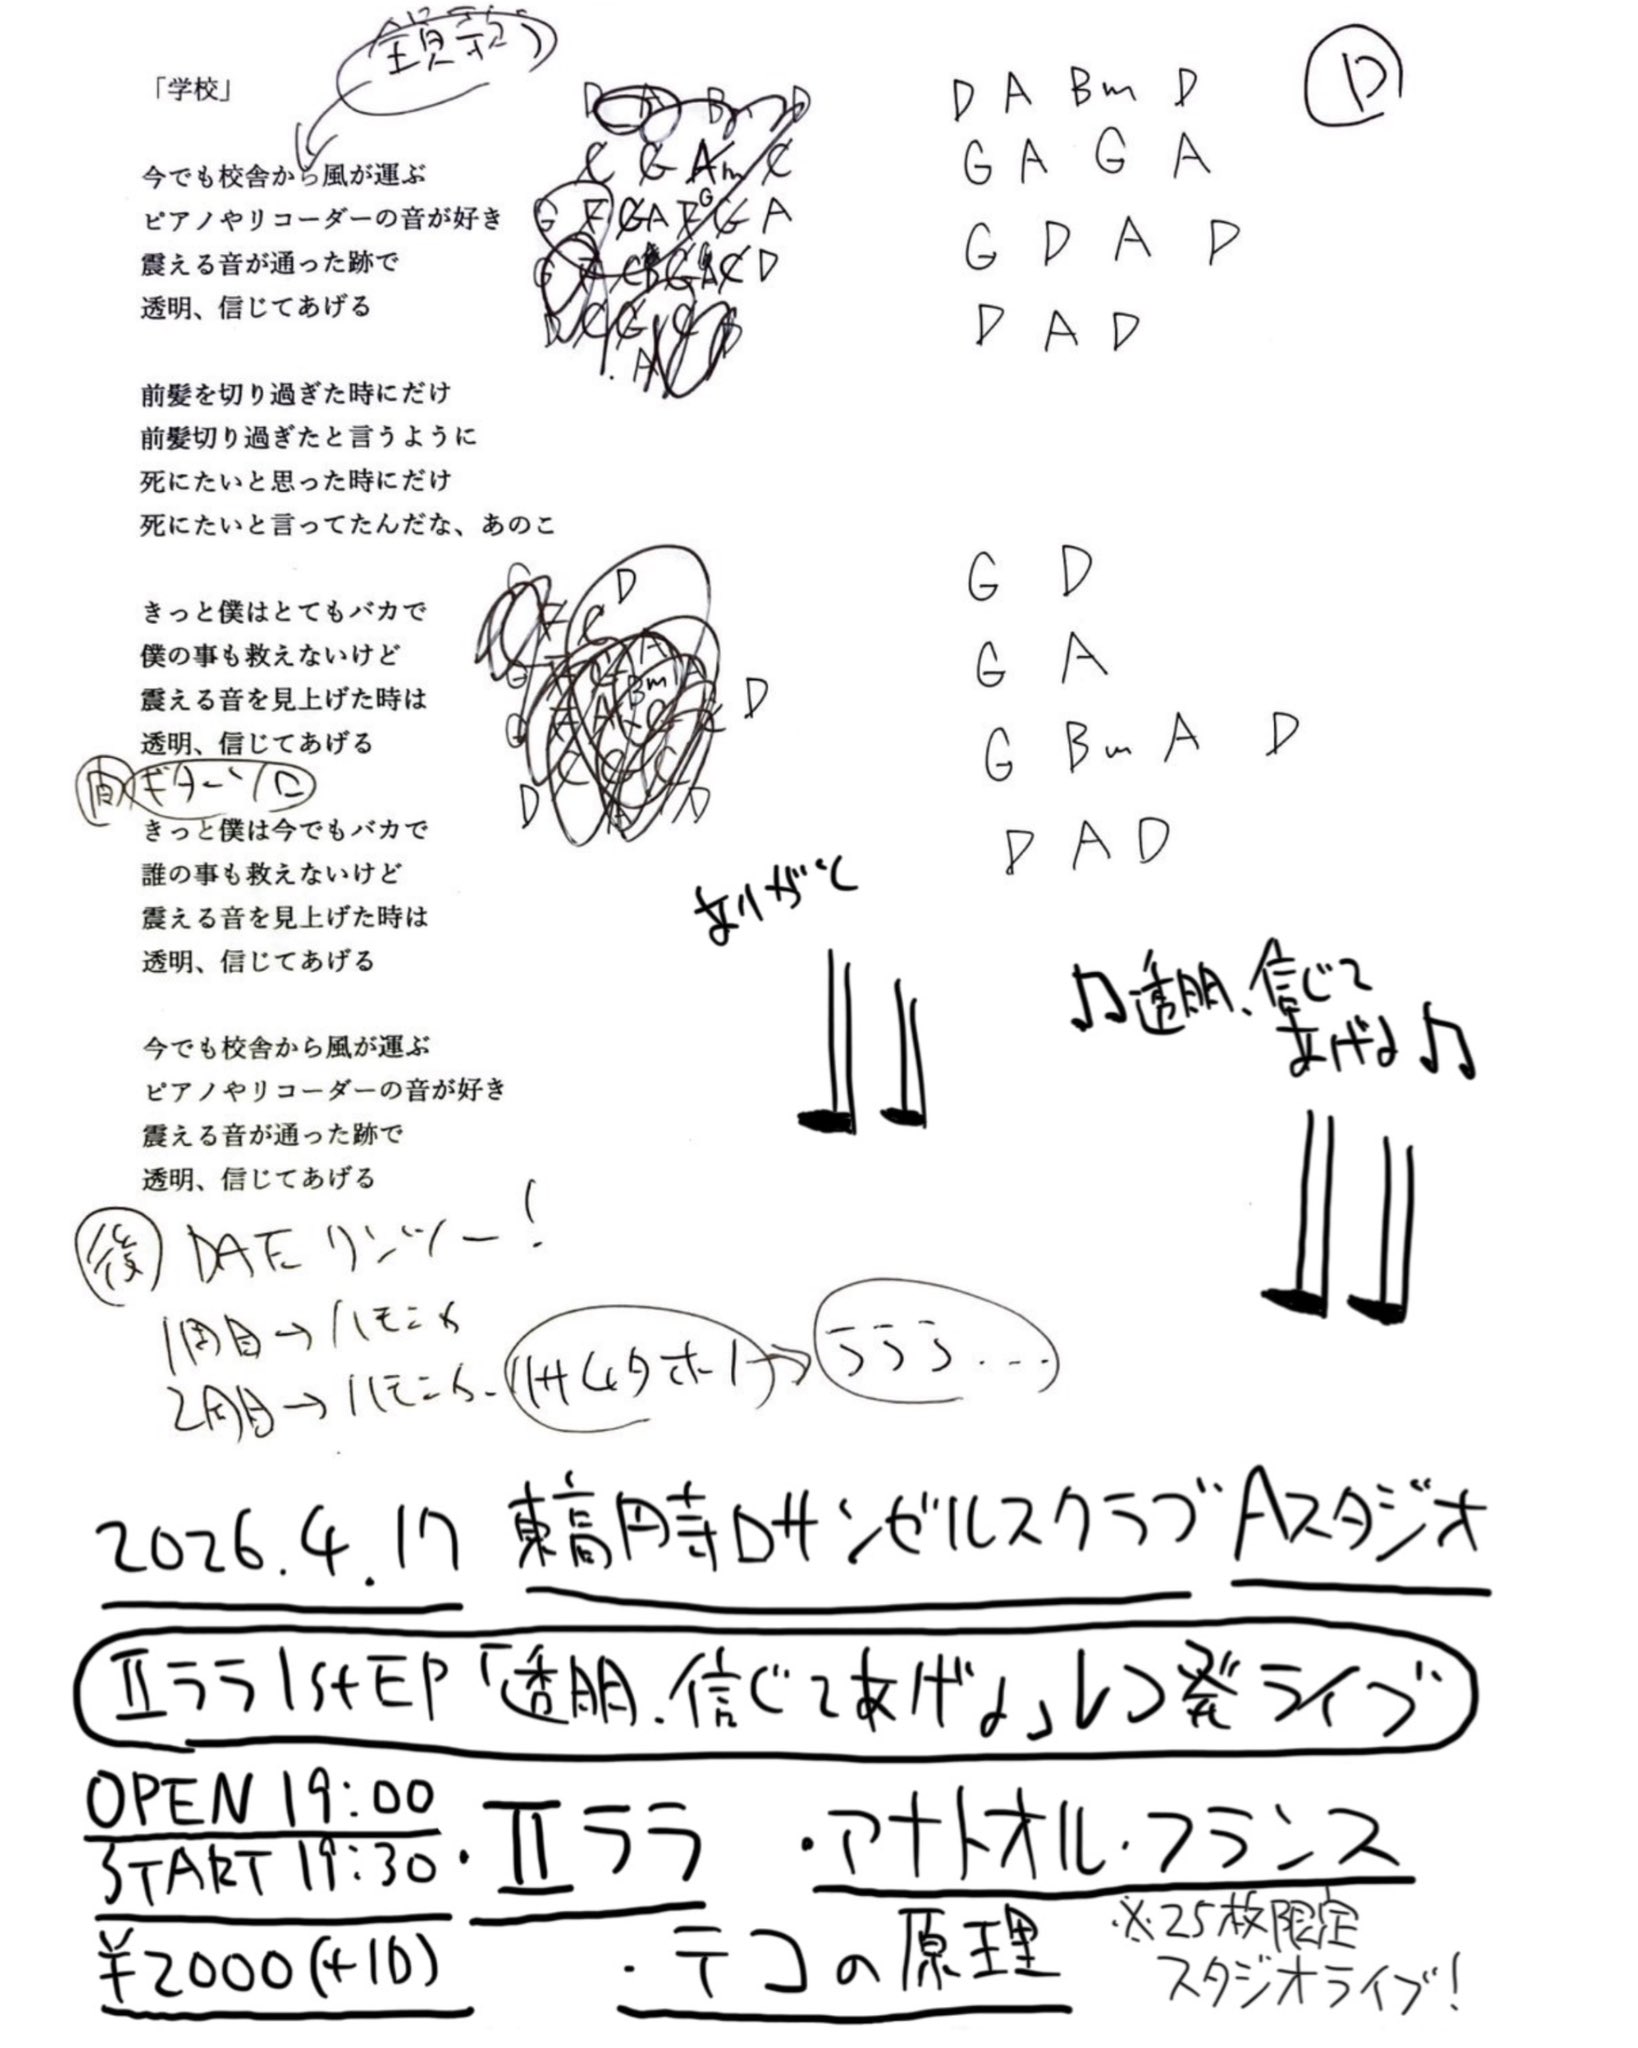 「学校」
今でも校舎から風が運ぶ
ピアノやリコーダーの音が好き
震える音が通った跡で
透明、信じてあげる
前髪を切り過ぎた時にだけ
前髪切り過ぎたと言うように
死にたいと思った時にだけ
死にたいと言ってたんだな、あのこ
きっと僕はとてもバカで
僕の事も救えないけど
震える音を見上げた時は
透明、信じてあげる
間 ギターソロ
きっと僕は今でもバカで
誰の事も救えないけど
震える音を見上げた時は
透明、信じてあげる
今でも校舎から風が運ぶ
ピアノやリコーダーの音が好き
震える音が通った跡で
透明、信じてあげる
D
D A Bm D
G A G A
G D A D
D A D
G D
G A
G Bm A D
D A D
ありがと
♫透明、信じて
あげる♫
後
1周目→ハモニカ
2周目→ハモニカ
ららら...
2026.4.17 東高円寺Dサンゼルスクラブ Aスタジオ
IIララ 1st EP「透明、信じてあげる」レコ発ライブ
OPEN 19:00
START 19:30
¥2000(+1D)
・IIララ ・アナトオル・フランス
・テコの原理
※25枚限定
スタジオライブ!